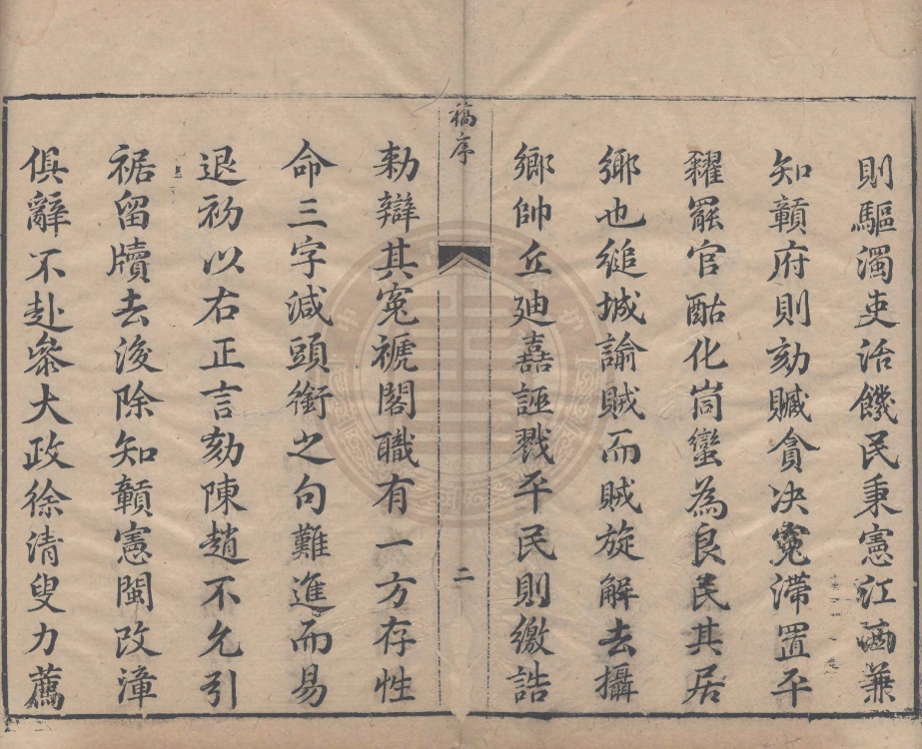 則驅濁吏活饑民秉憲江西兼
知贛府則劾贓貪决寃滯置平
糴罷官酤化峝蠻為良民其居
鄉也縋城諭賊而賊旋解去攝
鄉帥丘廸嚞誣戮平民則繳誥
稿序
二
勑辯其寃褫閣職有一方存性
命三字減頭銜之句難進而易
退初以右正言劾陳趙不允引
裾留牘去後除知贑憲閩改漳
俱辭不赴叅大政徐清叟力薦